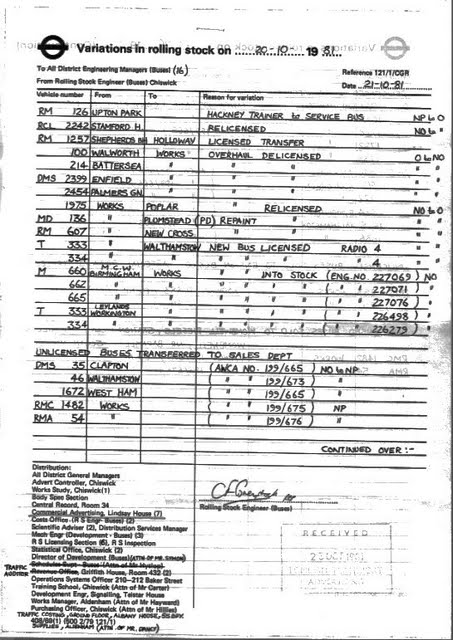 Variations in rolling stock on 20-10- 1981.
To All District Engineering Managers (Buses) (16)
Reference 121/T/CGR
From Rolling Stock Engineer (Buses) Chiswick
Date 21-10-81
Vehicle number From To Reason for variation
RM 126 UPTON PARK HACKNEY TRAINER to SERVICE BUS NP to O
RCL 2242 STAMFORD H. RELICENSED NO to "
RM 1257 SHEPHERDS BH HOLLOWAY LICENSED TRANSFER
100 WALWORTH WORKS OVERHAUL DELICENSED O to NO
214 BATTERSEA " " " "
DMS 2399 ENFIELD " " " "
2454 PALMERS GN. " " " "
1975 WORKS POPLAR " RELICENSED NO to O
MD 136 " PLUMSTEAD (PD) REPAINT " "
RM 607 " NEW CROSS " "
T 333 WALTHAMSTOW NEW BUS LICENSED RADIO 4 "
334 " " " " 4 "
M 660 M.C.W. BIRMINGHAM WORKS " INTO STOCK (ENG. NO. 227069) NO
662 " " " " ( " " 227071) "
665 " " " " ( " " 227076) "
T 333 LEYLANDS WORKINGTON " " " ( " " 226498) "
334 " " " " ( " " 226279) "
UNLICENSED BUSES TRANSFERRED TO SALES DEPT
DMS 35 CLAPTON (AWCA NO. 199/665) NO to NP
46 WALTHAMSTOW ( " " 199/673) "
1672 WEST HAM ( " " 199/665) "
RMC 1482 WORKS ( " " 199/675) NP
RMA 54 " ( " " 199/676) "
CONTINUED OVER :-
Distribution:
All District General Managers
Advert Controller, Chiswick
Works Study, Chiswick (1)
Body Spec Section
Central Record, Room 34
Commercial Advertising, Lindsay House (7)
Costs Office (R S Engr- Buses) (2)
Scientific Adviser (2), Distribution Services Manager
Mech Engr (Development - Buses) (3)
R S Licensing Section (6), R S Inspection
Statistical Office, Chiswick (2)
Director of Development (Buses) (ATTN OF MR. SIMON)
Schedules Supt - Buses (Attn of Mr Hyslop)
TRAFFIC AUDITOR Revenue Office, Griffith House, Room 432 (2)
Operations Systems Officer 210-212 Baker Street
Training School, Chiswick (Attn of Mr Carter)
Development Engr, Signalling, Telstar House
Works Manager, Aldenham (Attn of Mr Hayward)
Purchasing Officer, Chiswick (Attn of Mr Hillier)
TRAFFIC COSTING, GROUND FLOOR, ALBANY HOUSE, 55 BPK
408/89(1) (500 2/79 121/1)
SUPPLIES, ALDENHAM (ATTN OF MR. GRANT)
Rolling Stock Engineer (Buses)
RECEIVED